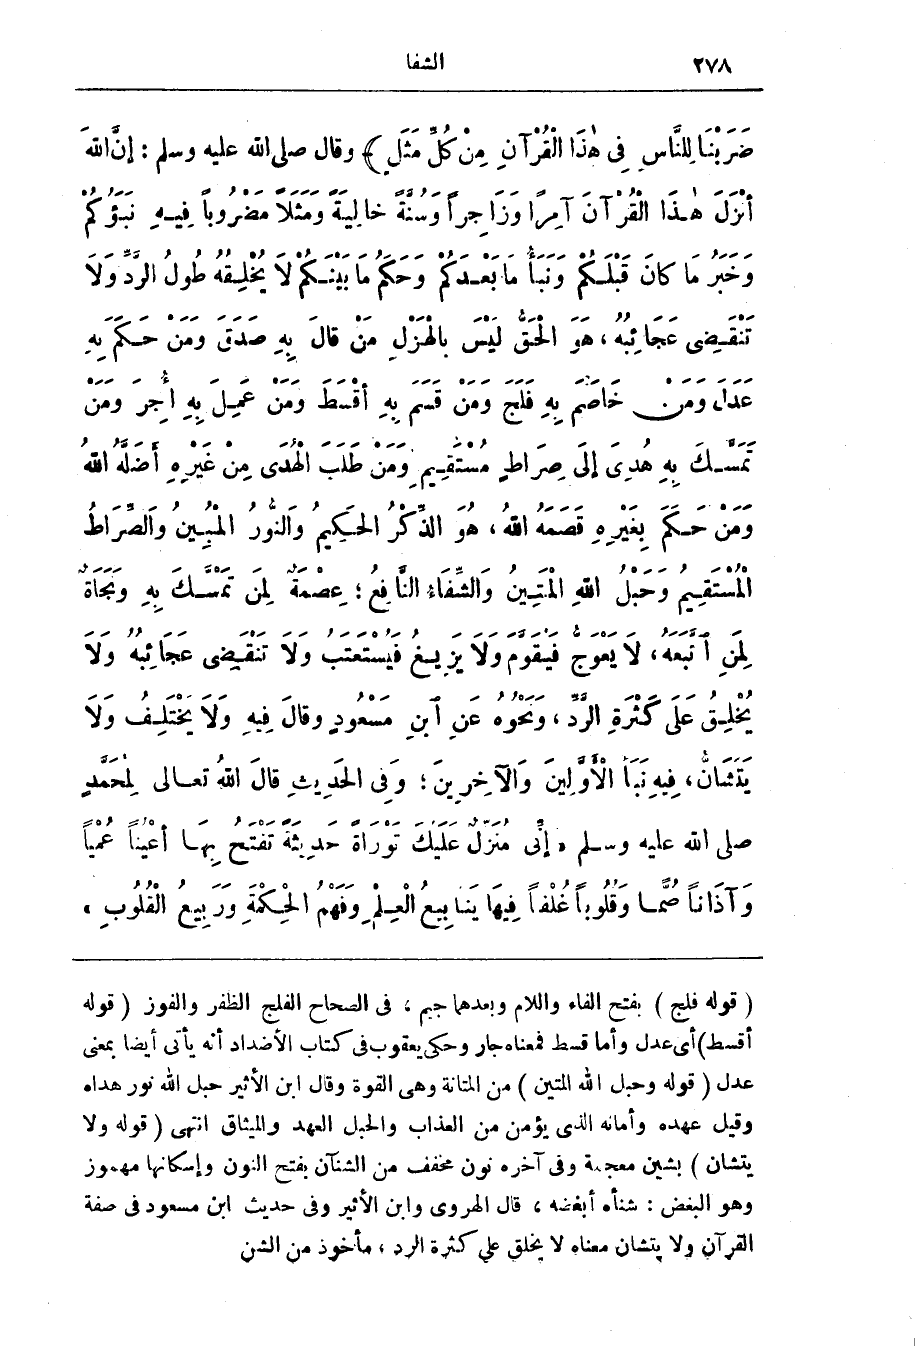 ٢٧٨ الشفا
ضَرَبْنَا لِلنَّاسِ فِى هٰذَا الْقُرْآنِ مِنْ كُلِّ مَثَلٍ ﴾ وقال صلى الله عليه وسلم : إنَّ اللهَ
أنْزَلَ هٰذَا الْقُرْآنَ آمِرًا وَزَاجِراً وَسُنَّةً خَالِيَةً وَمَثَلاً مَضْرُوباً فِيهِ نَبَؤُكُمْ
وَخَبَرُ مَا كَانَ قَبْلَكُمْ وَنَبَأُ مَا بَعْدَكُمْ وَحُكْمُ مَا بَيْنَكُمْ لَا يُخْلِقُهُ طُولُ الرَّدِّ وَلَا
تَنْقَضِى عَجَائِبُهُ ، هُوَ الْحَقُّ لَيْسَ بِالْهَزْلِ مَنْ قَالَ بِهِ صَدَقَ وَمَنْ حَكَمَ بِهِ
عَدَلَ وَمَنْ خَاصَمَ بِهِ فَلَجَ وَمَنْ قَسَمَ بِهِ أقْسَطَ وَمَنْ عَمِلَ بِهِ أُجِرَ وَمَنْ
تَمَسَّكَ بِهِ هُدِىَ إلَى صِرَاطٍ مُسْتَقِيمٍ وَمَنْ طَلَبَ الْهُدَى مِنْ غَيْرِهِ أَضَلَّهُ اللهُ
وَمَنْ حَكَمَ بِغَيْرِهِ قَصَمَهُ اللهُ ، هُوَ الذِّكْرُ الْحَكِيمُ وَالنُّورُ الْمُبِينُ وَالصِّرَاطُ
الْمُسْتَقِيمُ وَحَبْلُ اللهِ الْمَتِينُ وَالشِّفَاءُ النَّافِعُ ؛ عِصْمَةٌ لِمَنْ تَمَسَّكَ بِهِ وَنَجَاةٌ
لِمَنِ اتَّبَعَهُ ، لَا يَعْوَجُّ فَيُقَوَّمَ وَلَا يَزِيغُ فَيُسْتَعْتَبَ وَلَا تَنْقَضِى عَجَائِبُهُ وَلَا
يُخْلِقُ عَلَى كَثْرَةِ الرَّدِّ ، وَنَحْوُهُ عَنِ ابْنِ مَسْعُودٍ وقالَ فِيهِ وَلَا يَخْتَلِفُ وَلَا
يَتَشَانُّ ، فِيهِ نَبَأُ الْأَوَّلِينَ وَالْآخِرِينَ ؛ وَفِى الْحَدِيثِ قَالَ اللهُ تعالى لِمُحَمَّدٍ
صلى الله عليه وسلم « إنِّى مُنَزِّلٌ عَلَيْكَ تَوْرَاةً حَدِيثَةً تَفْتَحُ بِهَا أَعْيُناً عُمْياً
وَآذَاناً صُمًّا وَقُلُوباً غُلْفاً فِيهَا يَنَابِيعُ الْعِلْمِ وَفَهْمُ الْحِكْمَةِ وَرَبِيعُ الْقُلُوبِ ،
( قوله فلج ) بفتح الفاء واللام وبعدهما جيم ، فى الصحاح الفلج الظفر والفوز ( قوله
أقسط ) أى عدل وأما قسط فمعناه جار وحكى يعقوب فى كتاب الأضداد أنه يأتى أيضا بمعنى
عدل ( قوله وحبل الله المتين ) من المتانة وهى القوة وقال ابن الأثير حبل الله نور هداه
وقيل عهده وأمانه الذى يؤمن من العذاب والحبل العهد والميثاق انتهى ( قوله ولا
يتشان ) بشين معجمة وفى آخره نون مخفف من الشنآن بفتح النون وإسكانها مهموز
وهو البغض : شنأه أبغضه ، قال الهروى وابن الأثير وفى حديث ابن مسعود فى صفة
القرآن ولا يتشان معناه لا يخلق على كثرة الرد ، مأخوذ من الشن